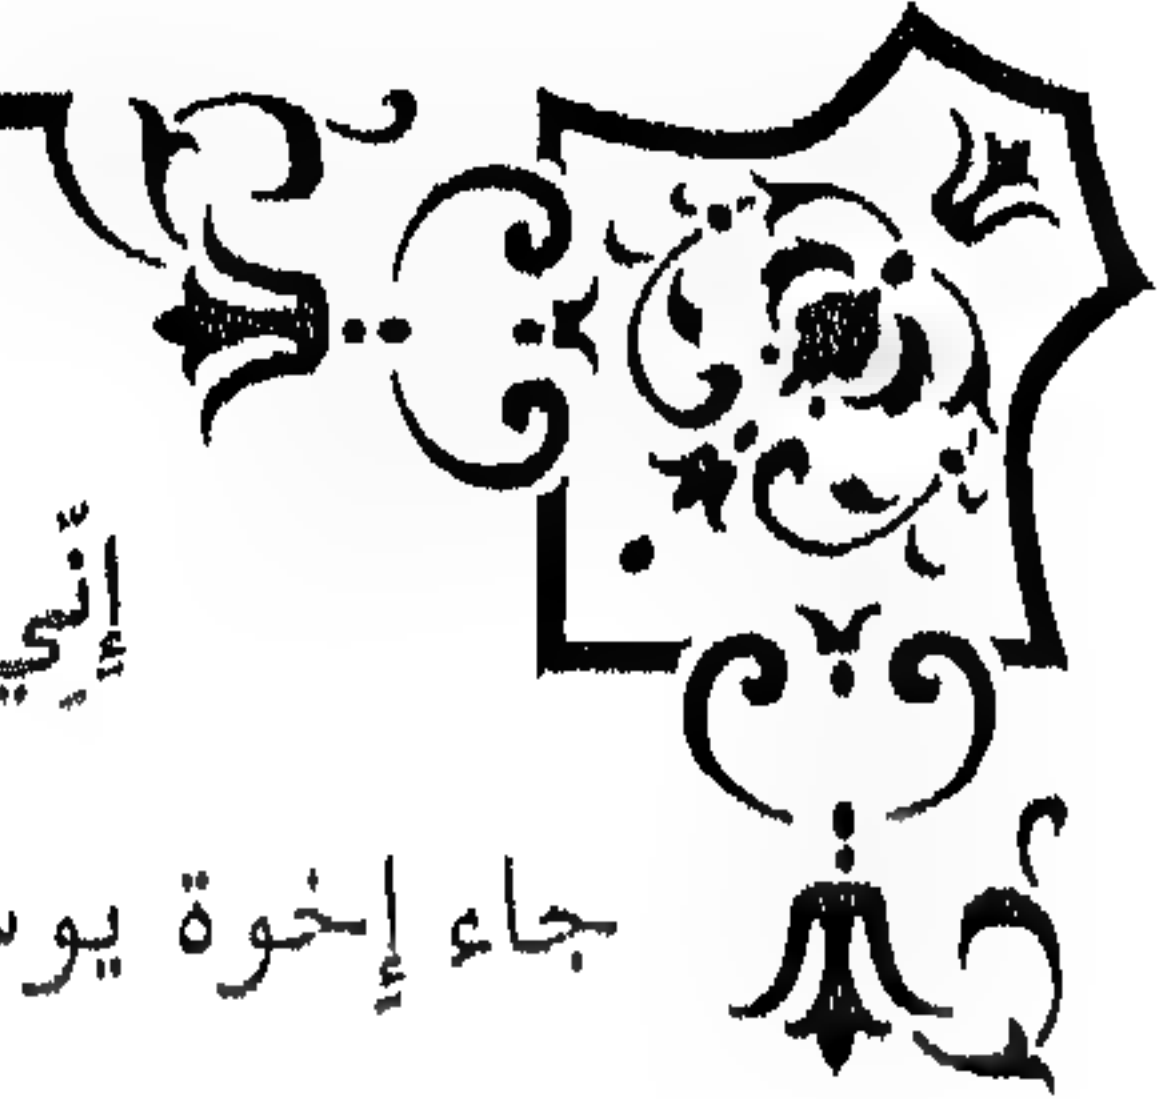 إِنِّي
جاء إخوة